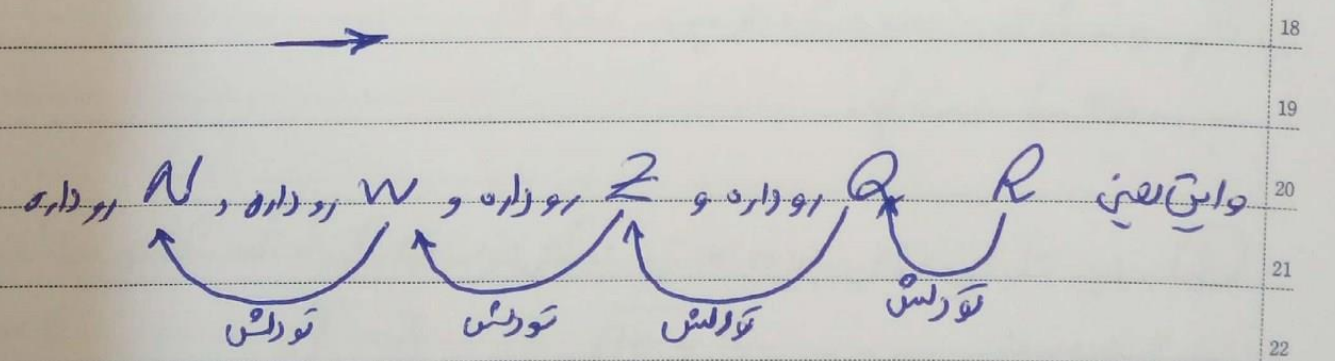 18
19
واین یعنی R Q رو داره و Z رو داره و W رو داره و N رو داره
20
21
تو دلش تو دلش تو دلش تو دلش
22